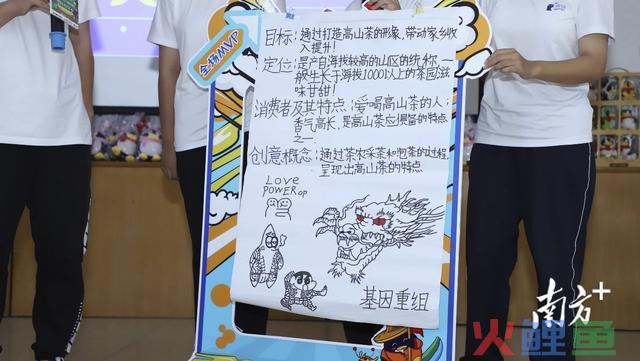 全场MVP
目标：通过打造高山茶的形象，带动家乡收
入提升！
定位：是产自海拔较高的山区的统称，一
般生长于海拔1000以上的茶园，滋
味甘甜！
消费者及其特点：爱喝高山茶的人；
香气高长，是高山茶应俱备的特点
之一
创意概念：通过茶农采茶和泡茶的过程，
呈现出高山茶的特点
Love
POWER op
基因重组
南方+
火鲤鱼